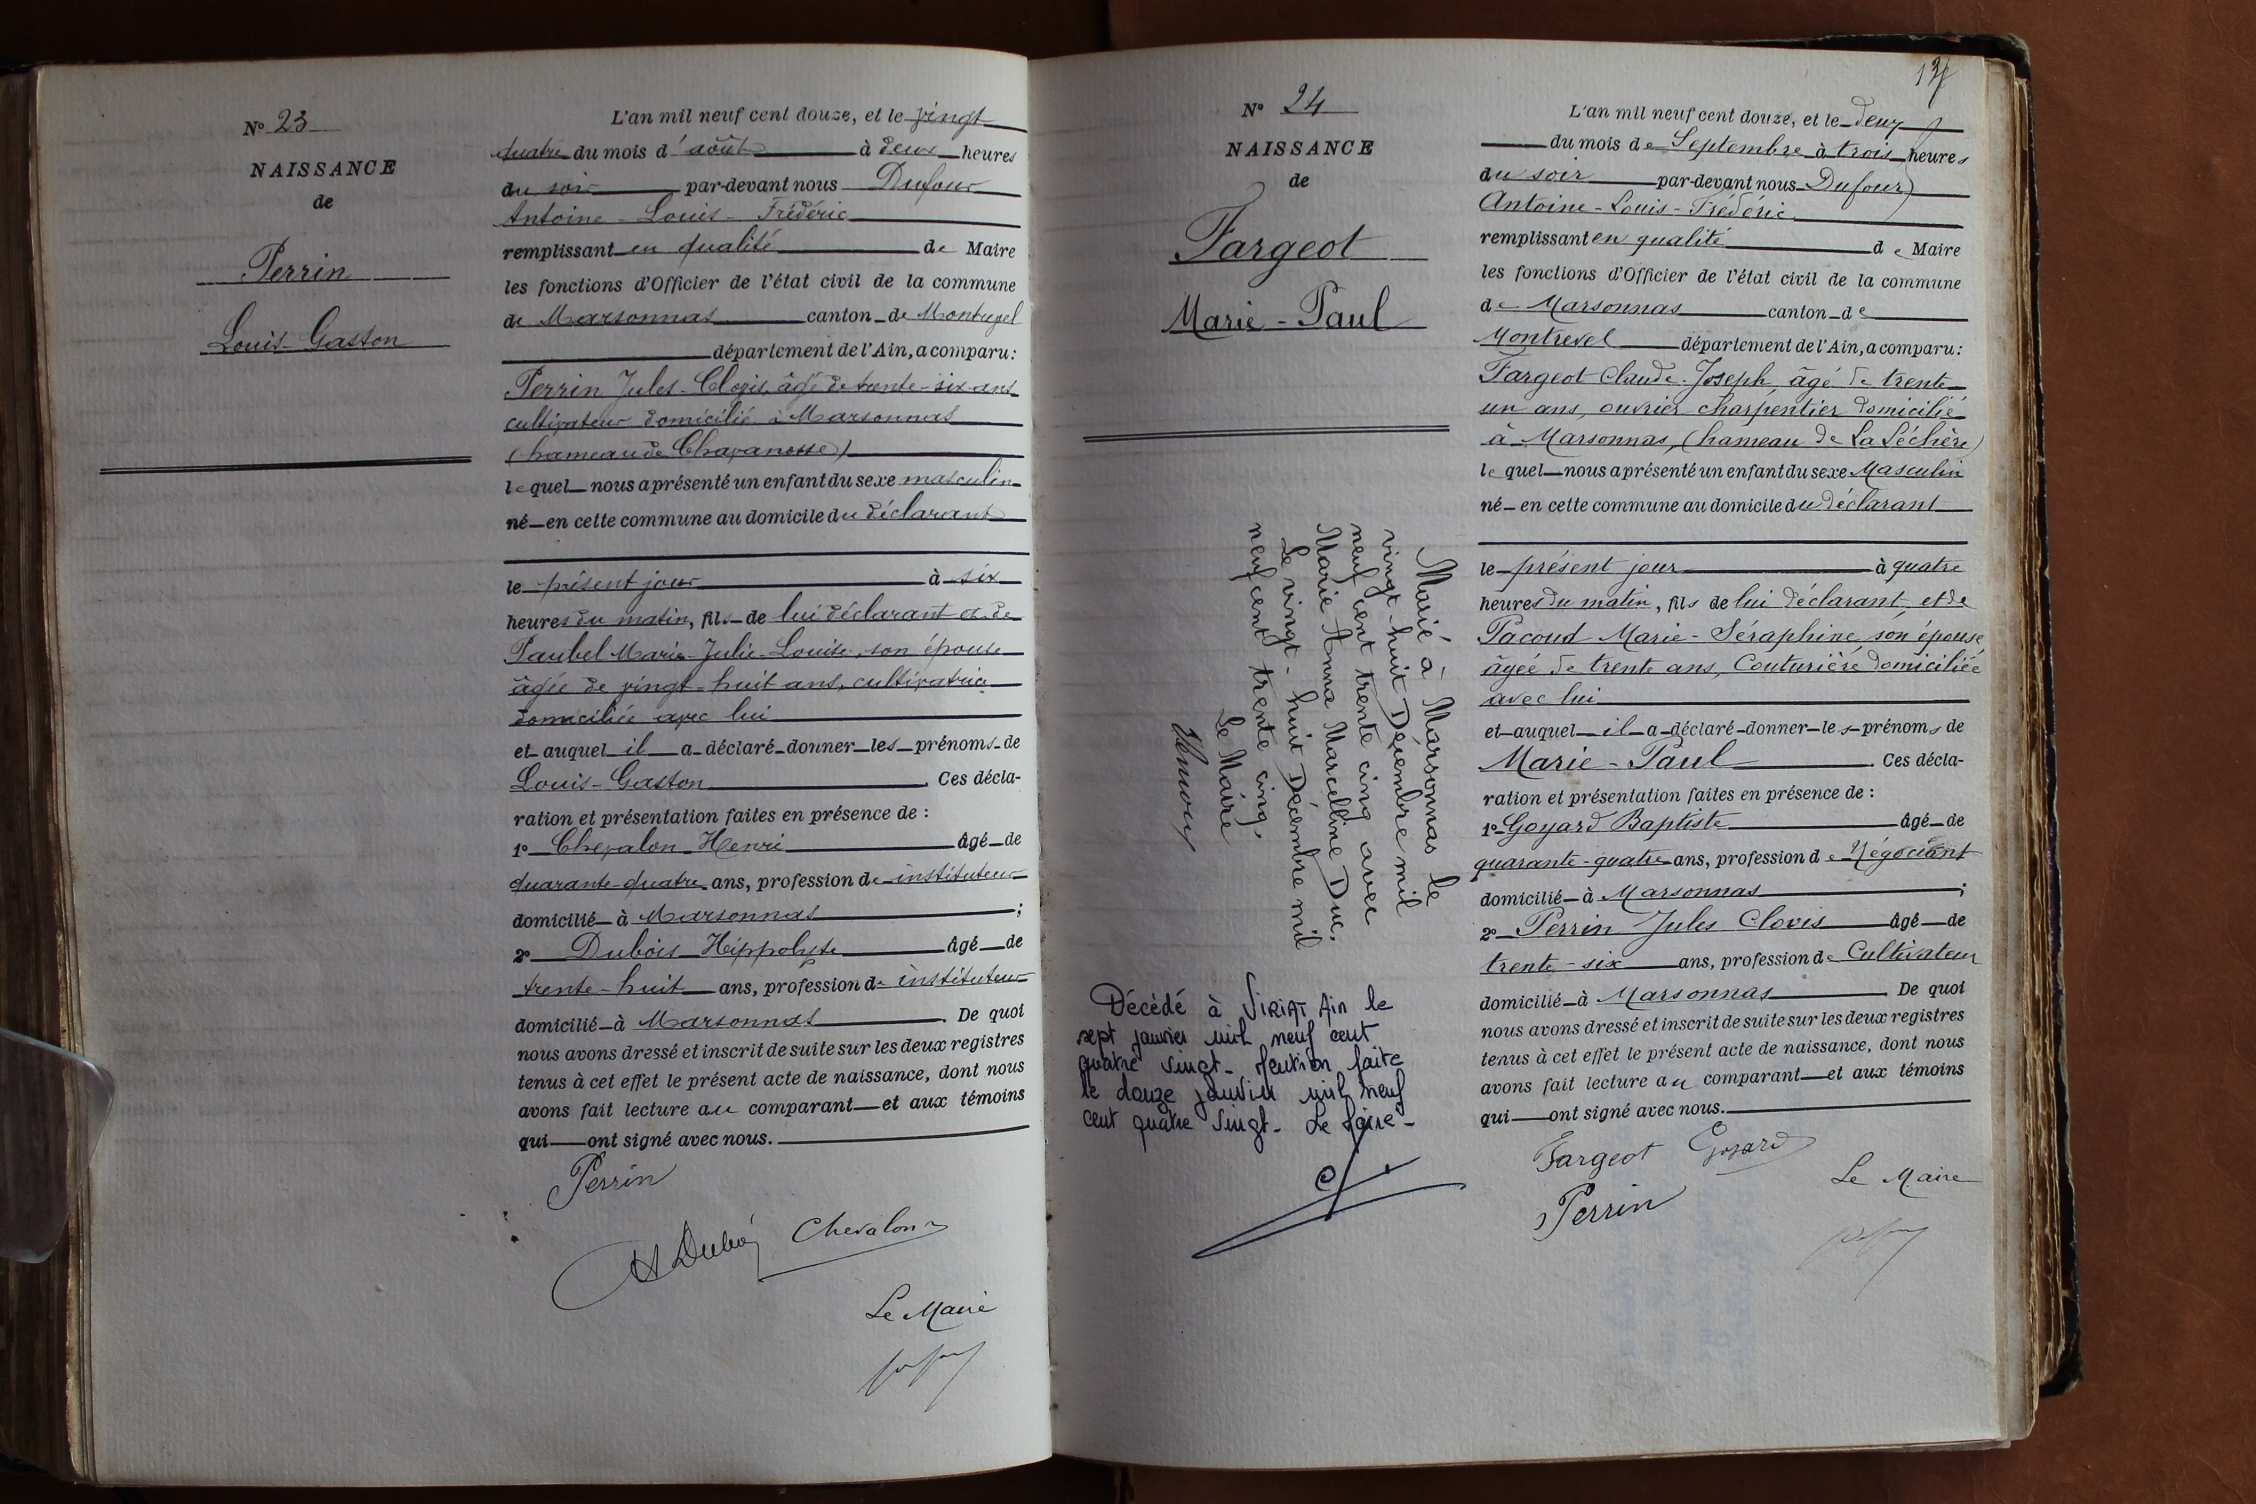 N° 23
NAISSANCE
de
Perrin
Louis-Gaston
L'an mil neuf cent douze, et le vingt
quatre du mois d'août à deux heures
du soir par-devant nous Dufour
Antoine-Louis-Frédéric
remplissant en qualité de Maire
les fonctions d'Officier de l'état civil de la commune
de Marsonnas canton de Montrevel
département de l'Ain, a comparu:
Perrin Jules-Clovis, âgé de trente-six ans
cultivateur domicilié à Marsonnas
(hameau de Chavanosse)
lequel nous a présenté un enfant du sexe masculin
né en cette commune au domicile du déclarant
le présent jour à six
heures du matin, fils de lui déclarant et de
Paubel Marie-Julie-Louise, son épouse
âgée de vingt-huit ans, cultivatrice
domiciliée avec lui
et auquel il a déclaré donner les prénoms de
Louis-Gaston. Ces décla-
ration et présentation faites en présence de :
1° Chevalon Henri âgé de
quarante-quatre ans, profession de instituteur
domicilié à Marsonnas ;
2° Dubois Hippolyte âgé de
trente-huit ans, profession de instituteur
domicilié à Marsonnas. De quoi
nous avons dressé et inscrit de suite sur les deux registres
tenus à cet effet le présent acte de naissance, dont nous
avons fait lecture au comparant et aux témoins
qui ont signé avec nous.
Perrin
H Dubois Chevalon
Le Maire
N° 24
NAISSANCE
de
Fargeot
Marie-Paul
Marié à Marsonnas le
vingt-huit Décembre mil
neuf cent trente cinq avec
Marie Anna Marcelline Duc.
Le vingt-huit Décembre mil
neuf cent trente cinq.
Le Maire
Décédé à VIRIAT Ain le
sept janvier mil neuf cent
quatre vingt - Mention faite
le douze janvier mil neuf
cent quatre vingt - Le Maire -
137
L'an mil neuf cent douze, et le deux
du mois de Septembre à trois heures
du soir par-devant nous Dufour
Antoine-Louis-Frédéric
remplissant en qualité de Maire
les fonctions d'Officier de l'état civil de la commune
de Marsonnas canton de
Montrevel département de l'Ain, a comparu:
Fargeot Claude-Joseph, âgé de trente
un ans, ouvrier charpentier domicilié
à Marsonnas, (hameau de La Léchère)
lequel nous a présenté un enfant du sexe Masculin
né en cette commune au domicile du déclarant
le présent jour à quatre
heures du matin, fils de lui déclarant, et de
Pacoud Marie-Séraphine, son épouse,
âgée de trente ans, Couturière domiciliée
avec lui
et auquel il a déclaré donner les prénoms de
Marie-Paul. Ces décla-
ration et présentation faites en présence de :
1° Goyard Baptiste âgé de
quarante-quatre ans, profession de Négociant
domicilié à Marsonnas ;
2° Perrin Jules Clovis âgé de
trente-six ans, profession de Cultivateur
domicilié à Marsonnas. De quoi
nous avons dressé et inscrit de suite sur les deux registres
tenus à cet effet le présent acte de naissance, dont nous
avons fait lecture au comparant et aux témoins
qui ont signé avec nous.
Fargeot Goyard
Perrin
Le Maire